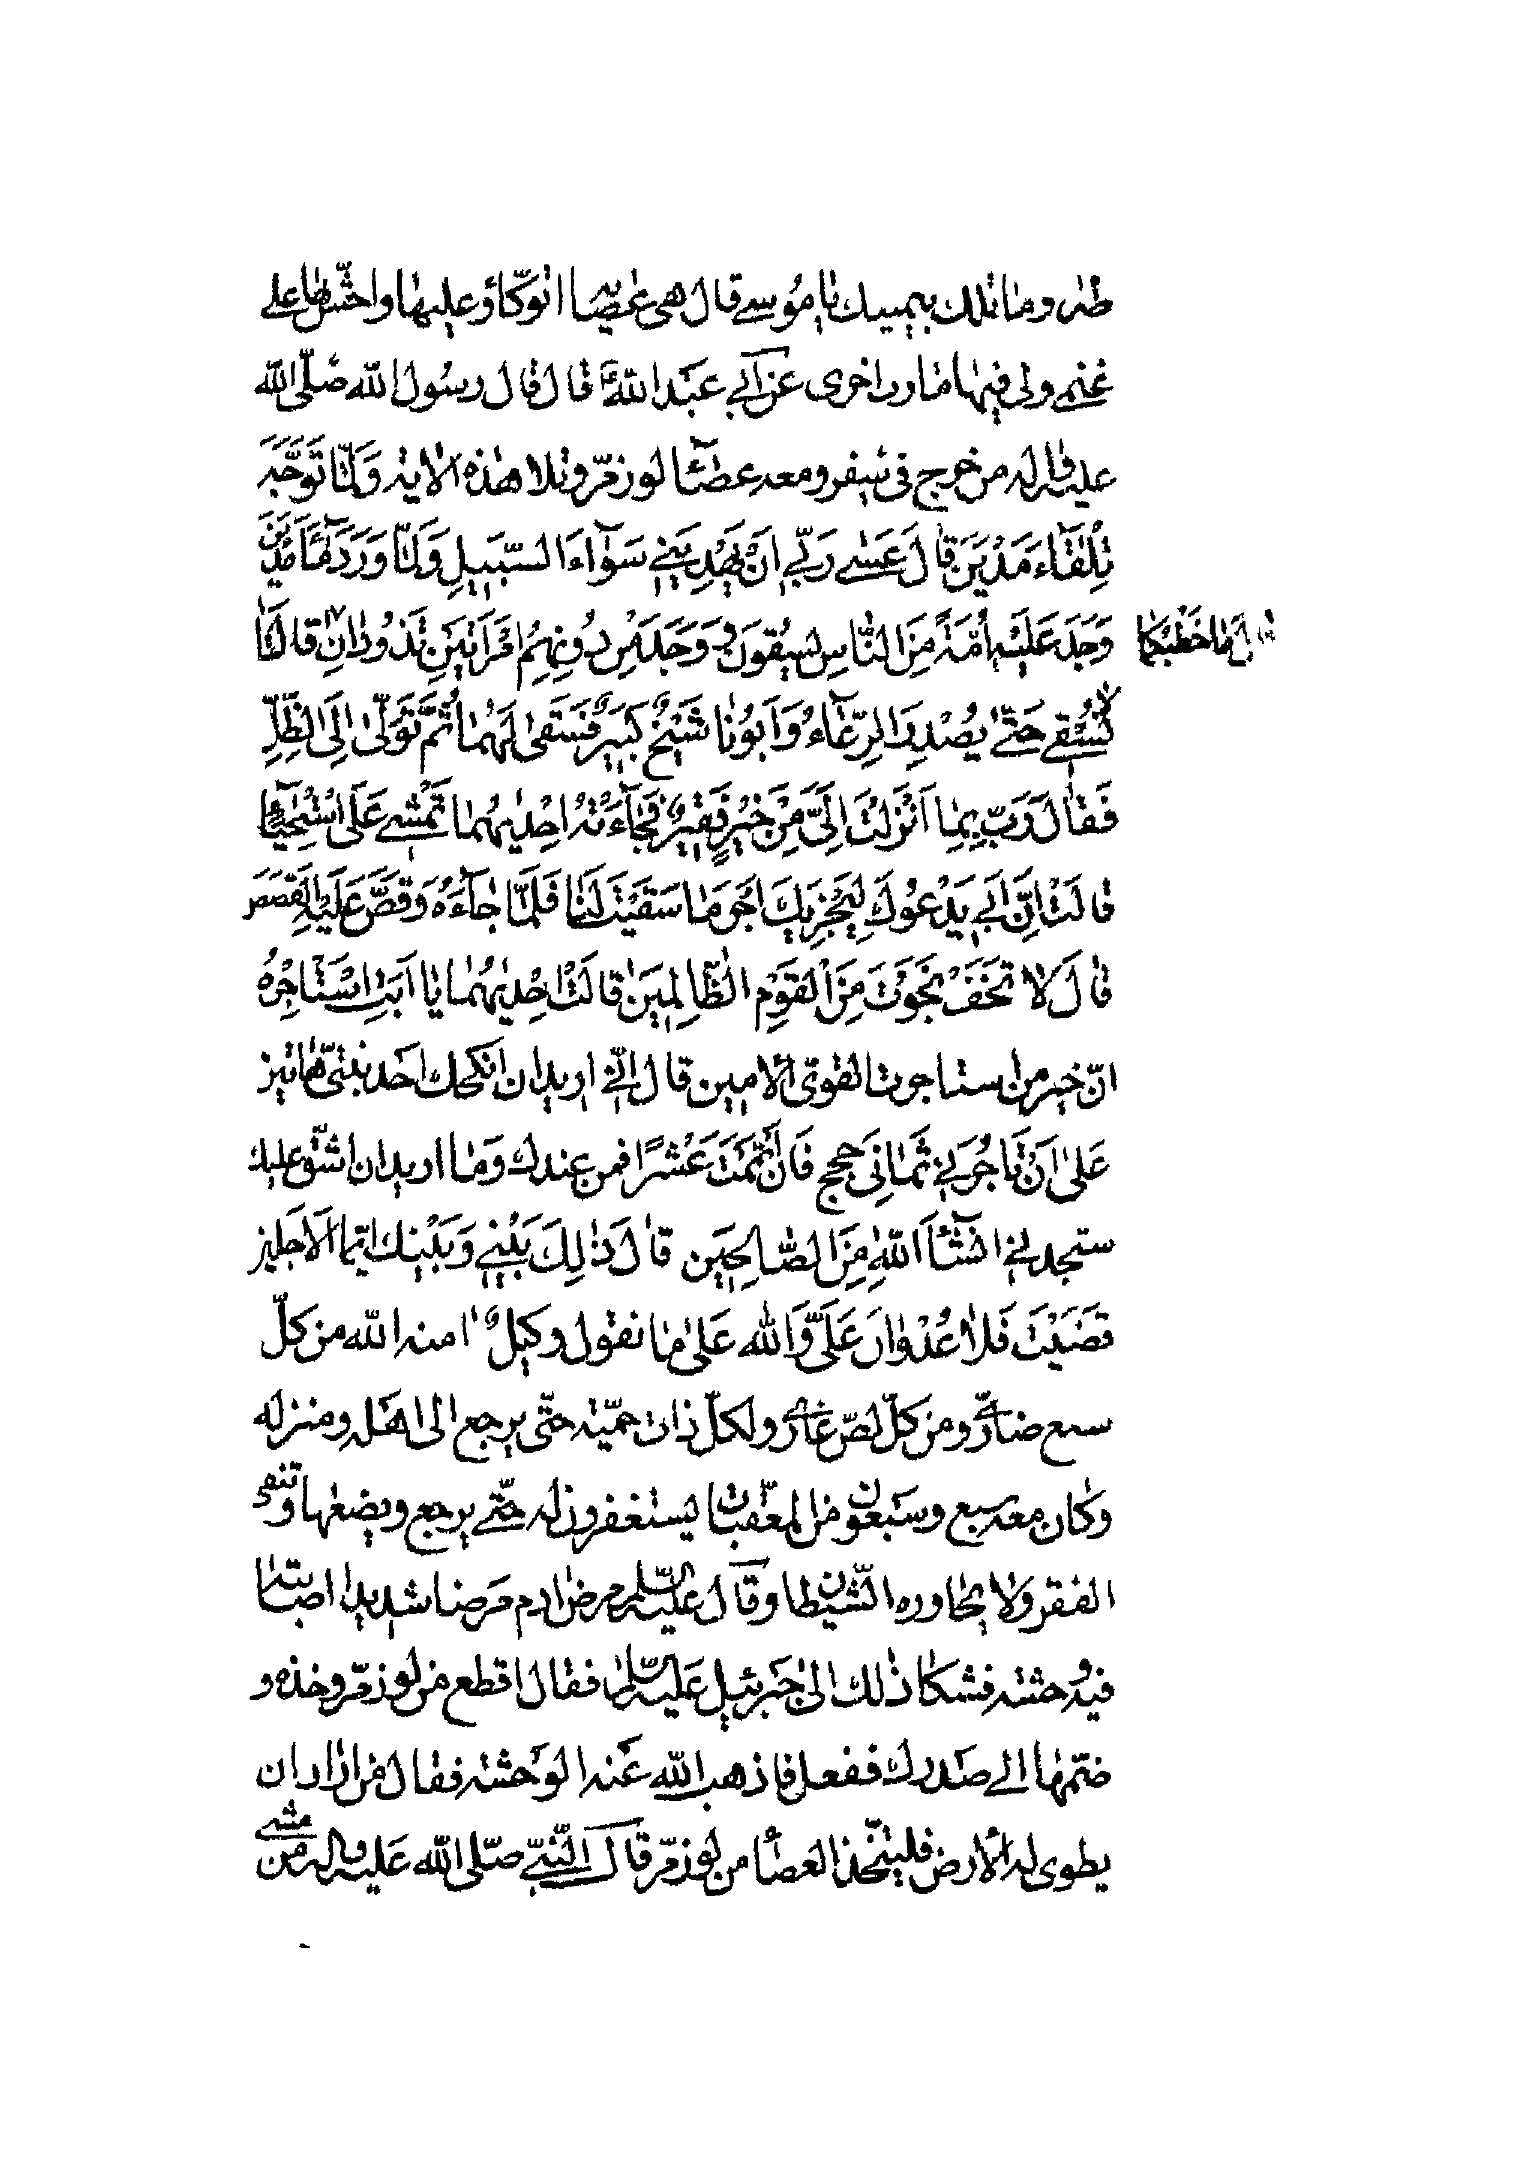 طه وما تلك بيمينك يا موسى قال هى عصاى اتوكّاؤ عليها واهشّ بها على
غنمى ولى فيها مارب اخرى عن ابى عبد الله ع قال قال رسول الله صلّى الله
عليه واله من خرج فى سفر ومعه عصا لوز مرّ وتلا هذه الاية وَلَمّا تَوَجَّهَ
تِلْقاءَ مَدْيَنَ قالَ عَسى رَبّى اَنْ يَهْدِيَنى سَواءَ السَّبيلِ وَلَمّا وَرَدَ ماءَ مَدْيَنَ
وَجَدَ عَلَيْهِ اُمَّةً مِنَ النّاسِ يَسْقُونَ وَوَجَدَ مِنْ دُونِهِمُ امْرَاَتَيْنِ تَذُودانِ قالَتا
قالَ ما خَطْبُكُما
لا نَسْقى حَتّى يُصْدِرَ الرِّعاءُ وَاَبُونا شَيْخٌ كَبيرٌ فَسَقى لَهُما ثُمَّ تَوَلّى اِلَى الظِّلِّ
فَقالَ رَبِّ اِنّى لِما اَنْزَلْتَ اِلَىَّ مِنْ خَيْرٍ فَقيرٌ فَجاءَتْهُ اِحْديهُما تَمْشى عَلَى اسْتِحْياءٍ
قالَتْ اِنَّ اَبى يَدْعُوكَ لِيَجْزِيَكَ اَجْرَ ما سَقَيْتَ لَنا فَلَمّا جاءَهُ وَقَصَّ عَلَيْهِ الْقَصَصَ
قالَ لا تَخَفْ نَجَوْتَ مِنَ الْقَوْمِ الظّالِمينَ قالَتْ اِحْديهُما يا اَبَتِ اسْتَاْجِرْهُ
انّ خير من استاجرت القوىّ الامين قال انّى اريد ان انكحك احدى ابنتىّ هاتين
عَلى اَنْ تَاْجُرَنى ثَمانِىَ حِجَجٍ فَاِنْ اَتْمَمْتَ عَشْرًا فمن عندك وَما اريد ان اشقّ عليك
ستجدنى انشاَ اللهُ مِنَ الصّالِحينَ قالَ ذلِكَ بَيْنى وَبَيْنَكَ ايّما الاَجلين
قَضَيْتَ فَلا عُدْوانَ عَلَىَّ وَالله عَلى ما نقول وكيلٌ امنه الله من كلّ
سبع ضارّ ومن كلّ لصّ غارّ ولكلّ ذات حميّة حتّى يرجع الى اهله ومنزله
وكان معه سبع وسبعون من المعقّبات يستغفرون له حتّى يرجع ويضعها وتنفى
الفقر ولا يجاوره الشّيطان وقال عليه السّلم مرض ادم مرضا شديدا اصابته
فيه وحشة فشكا ذلك الى جبرئيل عليه السّلم فقال اقطع من لوز مرّ وخذه و
ضمّها الى صدرك ففعل فاذهب الله عنه الوحشة فقال من اراد ان
يطوى له الارض فليتّخذ العصا من لوز مرّ قال النّبىّ صلّى الله عليه واله من مشى